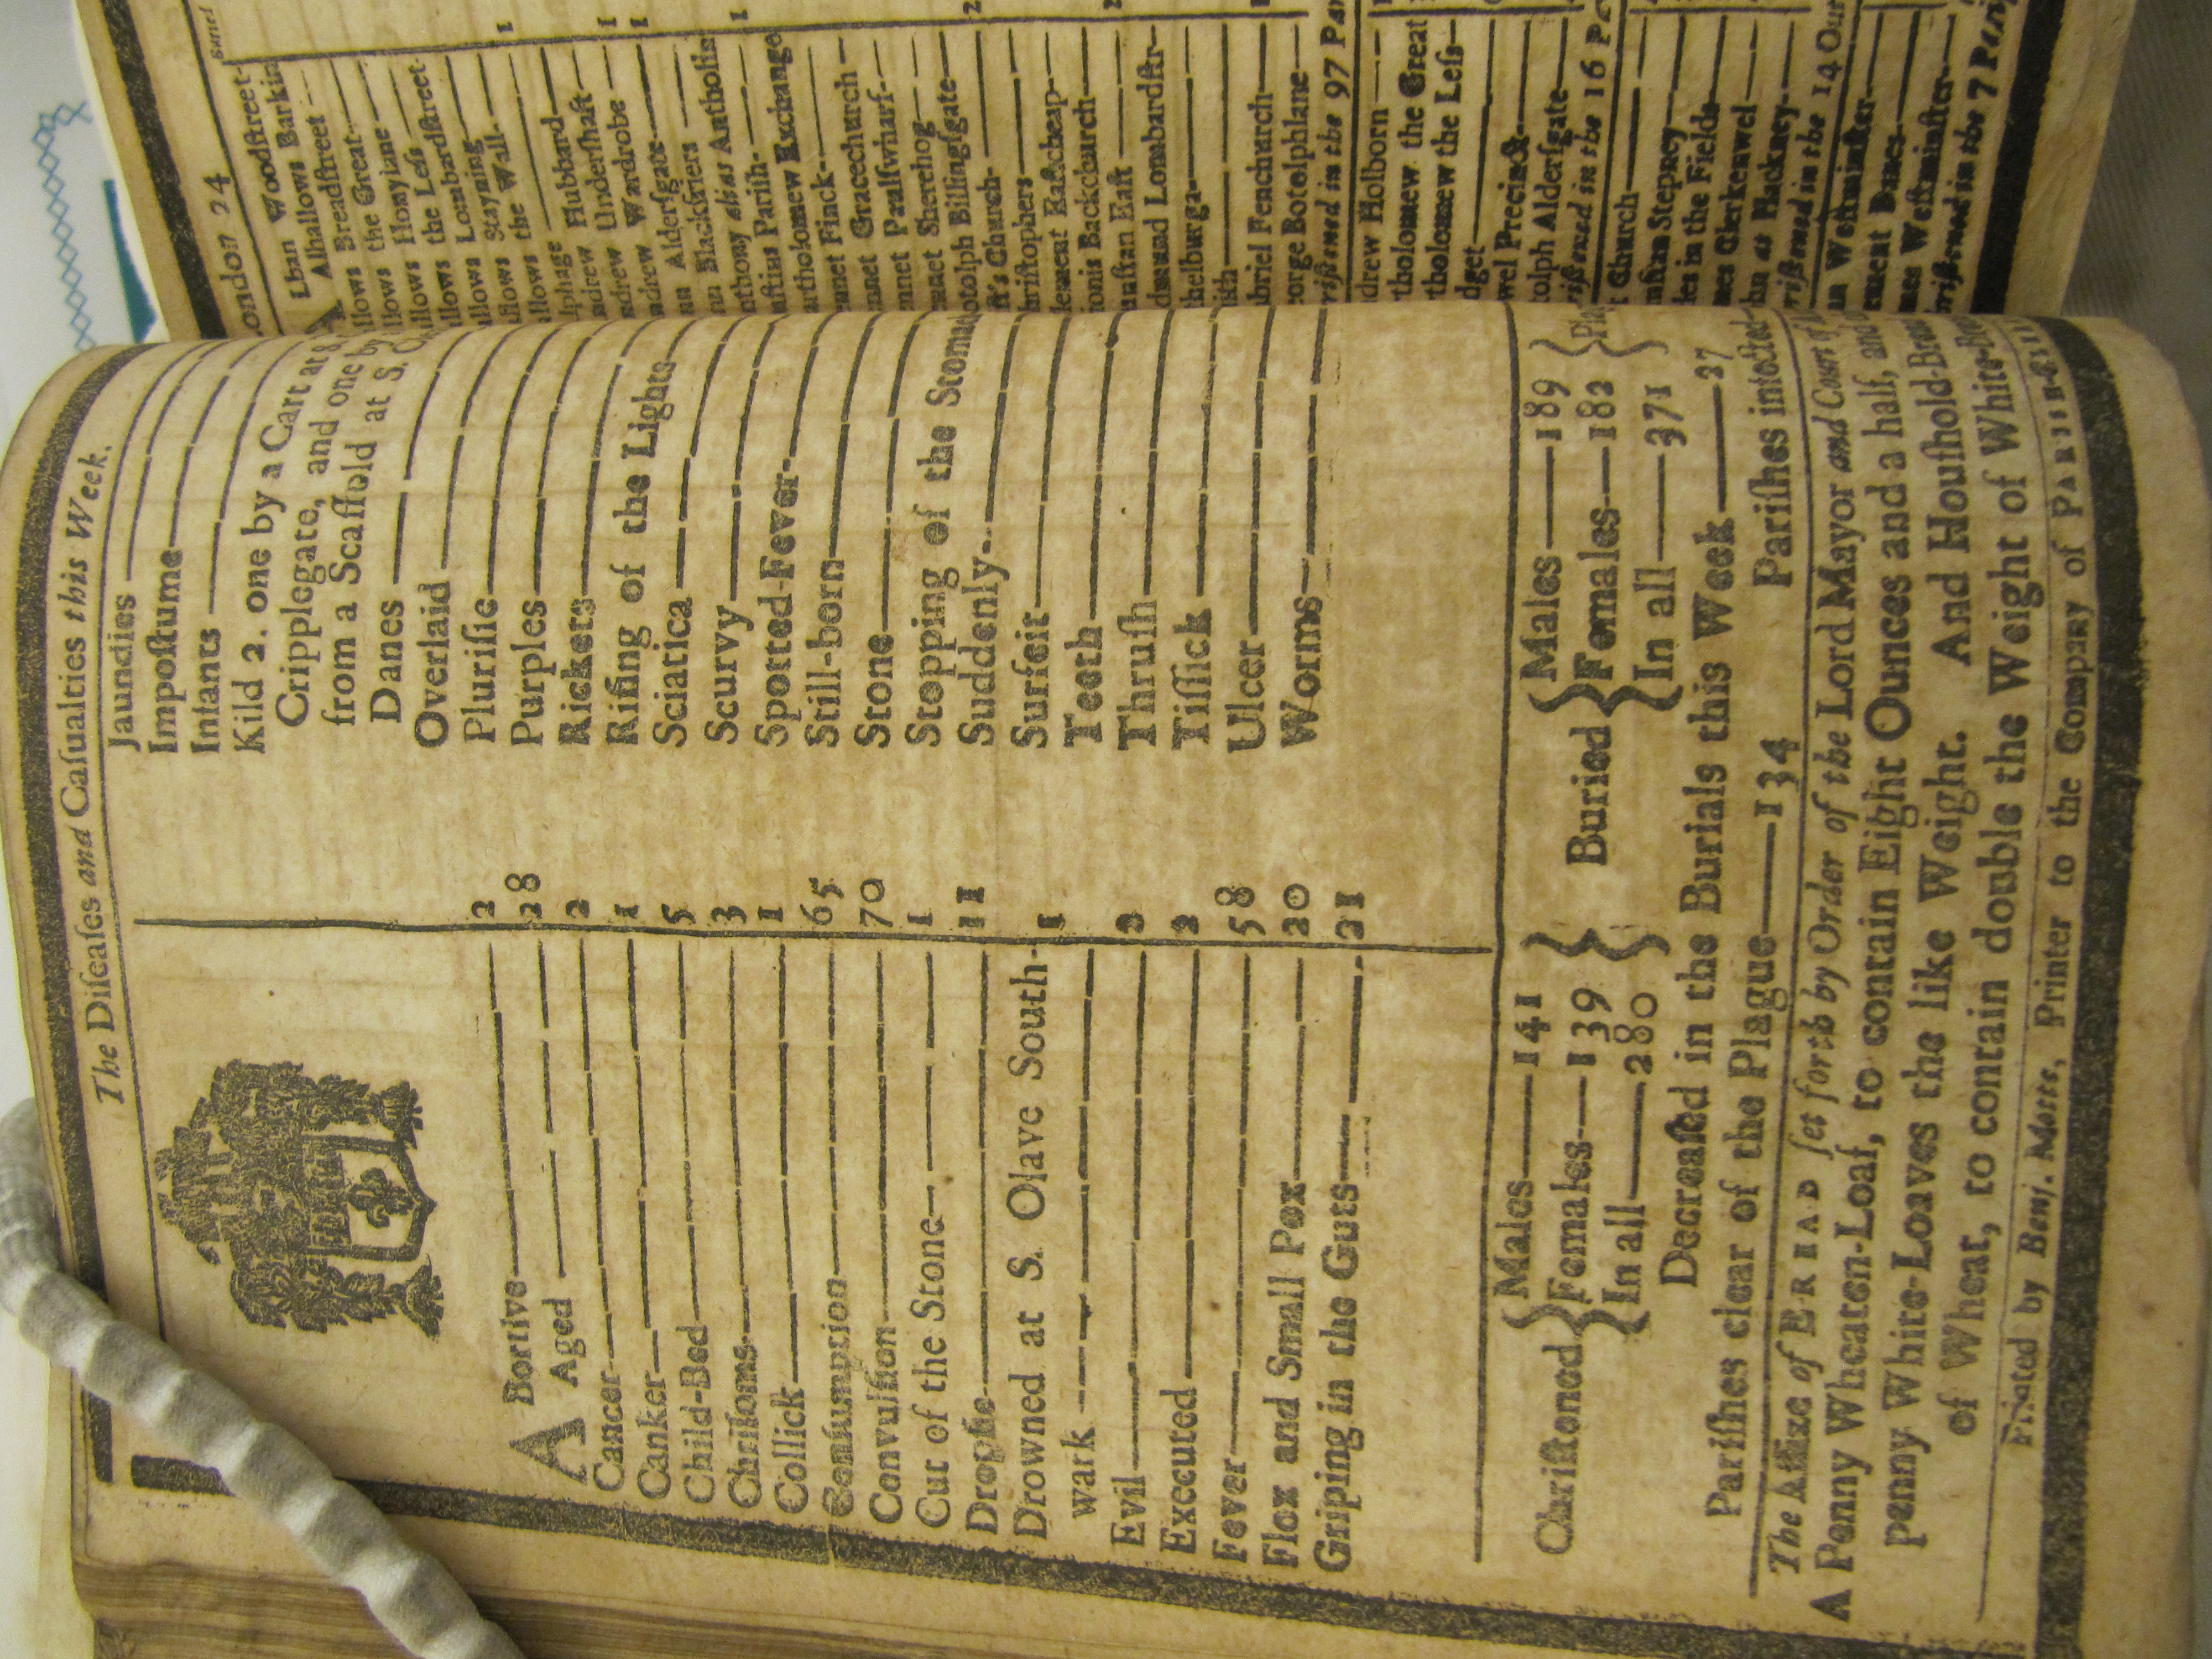 The Diſeaſes and Caſualties this Week.
ABortive 2
Aged 28
Cancer 2
Canker 1
Child-Bed 5
Chriſoms 3
Collick 1
Conſumption 65
Convulſion 70
Cut of the Stone 1
Dropſie 11
Drowned at S. Olave South-
wark 1
Evil 2
Executed 2
Fever 58
Flox and Small Pox 20
Griping in the Guts 21
Jaundies
Impoſtume
Infants
Kild 2. one by a Cart at S.
Cripplegate, and one by
from a Scaffold at S.
Danes
Overlaid
Pluriſie
Purples
Rickets
Riſing of the Lights
Sciatica
Scurvy
Spotted-Fever
Still-born
Stone
Stopping of the Stoma
Suddenly
Surfeit
Teeth
Thruſh
Tiſſick
Ulcer
Worms
Chriſtened { Males 141
Females 139
In all 280 }
Buried { Males 189
Females 182
In all 371 }
Decreaſed in the Burials this Week 27
Pariſhes clear of the Plague 134 Pariſhes infected
The Aſſize of BREAD ſet forth by Order of the Lord Mayor and Court of
A Penny Wheaten-Loaf, to contain Eight Ounces and a half, and
penny White-Loaves the like Weight. And Houſhold-Brea
of Wheat, to contain double the Weight of White-Br
Printed by Benj. Motte, Printer to the Company of PARISH-
London 24
Buried
Lban Woodſtreet
Alhallows Barkin
llows Breadſtreet
llows the Great
llows Honylane
llows the Leſs
llows Lombardſtreet 1
llows Stayning
llows the Wall
lphage
ndrew Hubbard 1
ndrew Underſhaft 1
ndrew Wardrobe
nn Alderſgate
nn Blackfriers 1
nthony alias Antholin
aſtins Pariſh
artholomew Exchange
ennet Finck
ennet Gracechurch
ennet Paulſwharf
ennet Sherehog 2
otolph Billingſgate
ſt's Church
hriſtophers
lement Eaſtcheap
ionis Backchurch
unſtan Eaſt
dmund Lombardſtr
thelburga
ith
briel Fenchurch
eorge Botolphlane
riſtened in the 97 Par
drew Holborn
tholomew the Great
tholomew the Leſs
dget
ewel Precinct
olph Alderſgate
riſtened in the 16 Pa
t Church
nſtan Stepney
les in the Fields
mes Clerkenwel
hn at Hackney
riſtened in the 14 Out
an Weſtminſter
ement Danes
mes Weſtminſter
riſtened in the 7 Pari